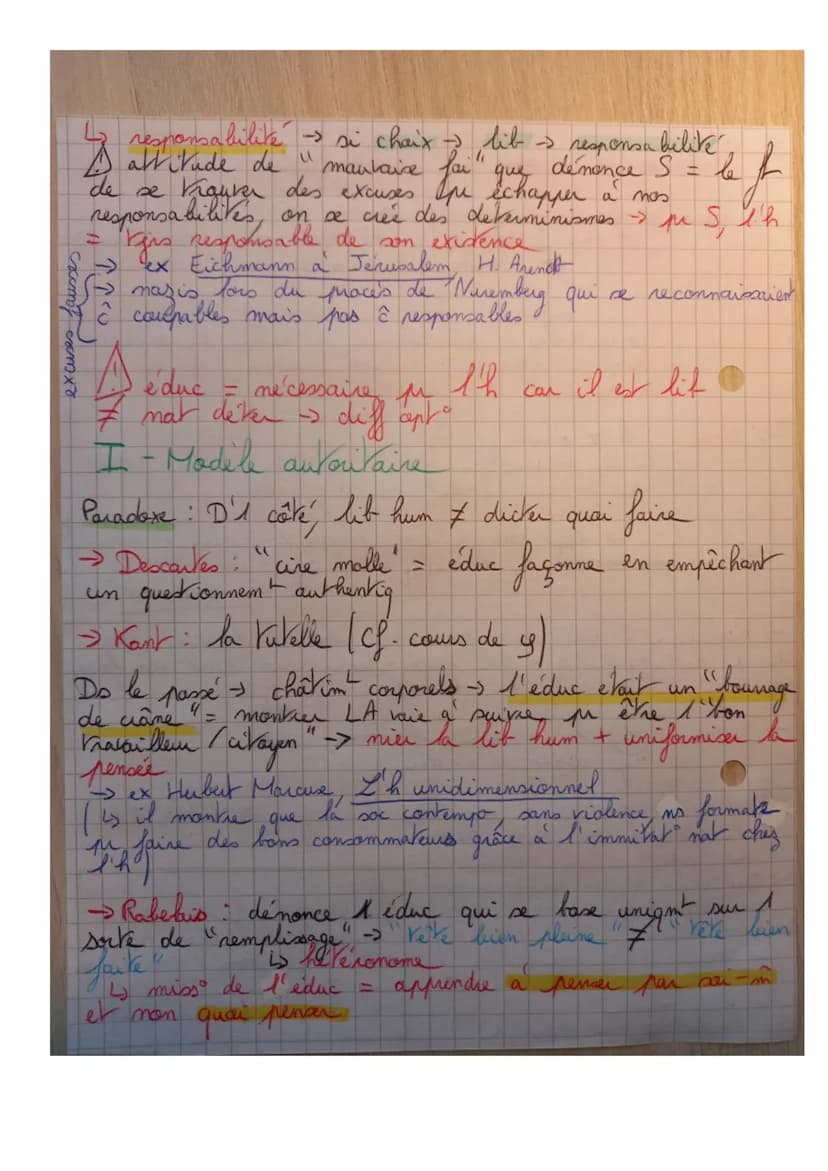 ↳ responsabilité → si choix → lib → responsabilité
⚠ attitude de "mauvaise foi" que dénonce S = le ft
de se trouver des excuses pr échapper à nos
responsabilités, on se crée des déterminismes → pr S, l'h
= tjrs responsable de son existence
→ ex Eichmann à Jérusalem, H. Arendt
→ nazis lors du procès de Nuremberg qui se reconnaissaient
ĉ coupables mais pas ĉ responsables
excuses fausses
⚠ éduc = nécessaire pr l'h car il est lib
≠ nat déter → diff apt°
I - Modèle autoritaire
Paradoxe : D'1 côté, lib hum ≠ dicter quoi faire
→ Descartes : "cire molle" = éduc façonne en empêchant
un questionnemt authentiq
→ Kant : la tutelle (cf. cours de φ)
Ds le passé → châtimt corporels → l'éduc était un "bourrage
de crâne" = montrer LA voie à suivre pr être 1 "bon
travailleur / citoyen" → nier la lib hum + uniformiser la
pensée
→ ex Herbert Marcuse, L'h unidimensionnel
(↳ il montre que la soc contempo, sans violence, ns formate
pr faire des bons consommateurs grâce à l'immitat° nat chez
l'h)
→ Rabelais : dénonce 1 éduc qui se base uniqmt sur 1
sorte de "remplissage" → "tête bien pleine" ≠ "tête bien
faite"
↳ hétéronome
↳ miss° de l'éduc = apprendre à penser par soi-m̂
et non quoi penser